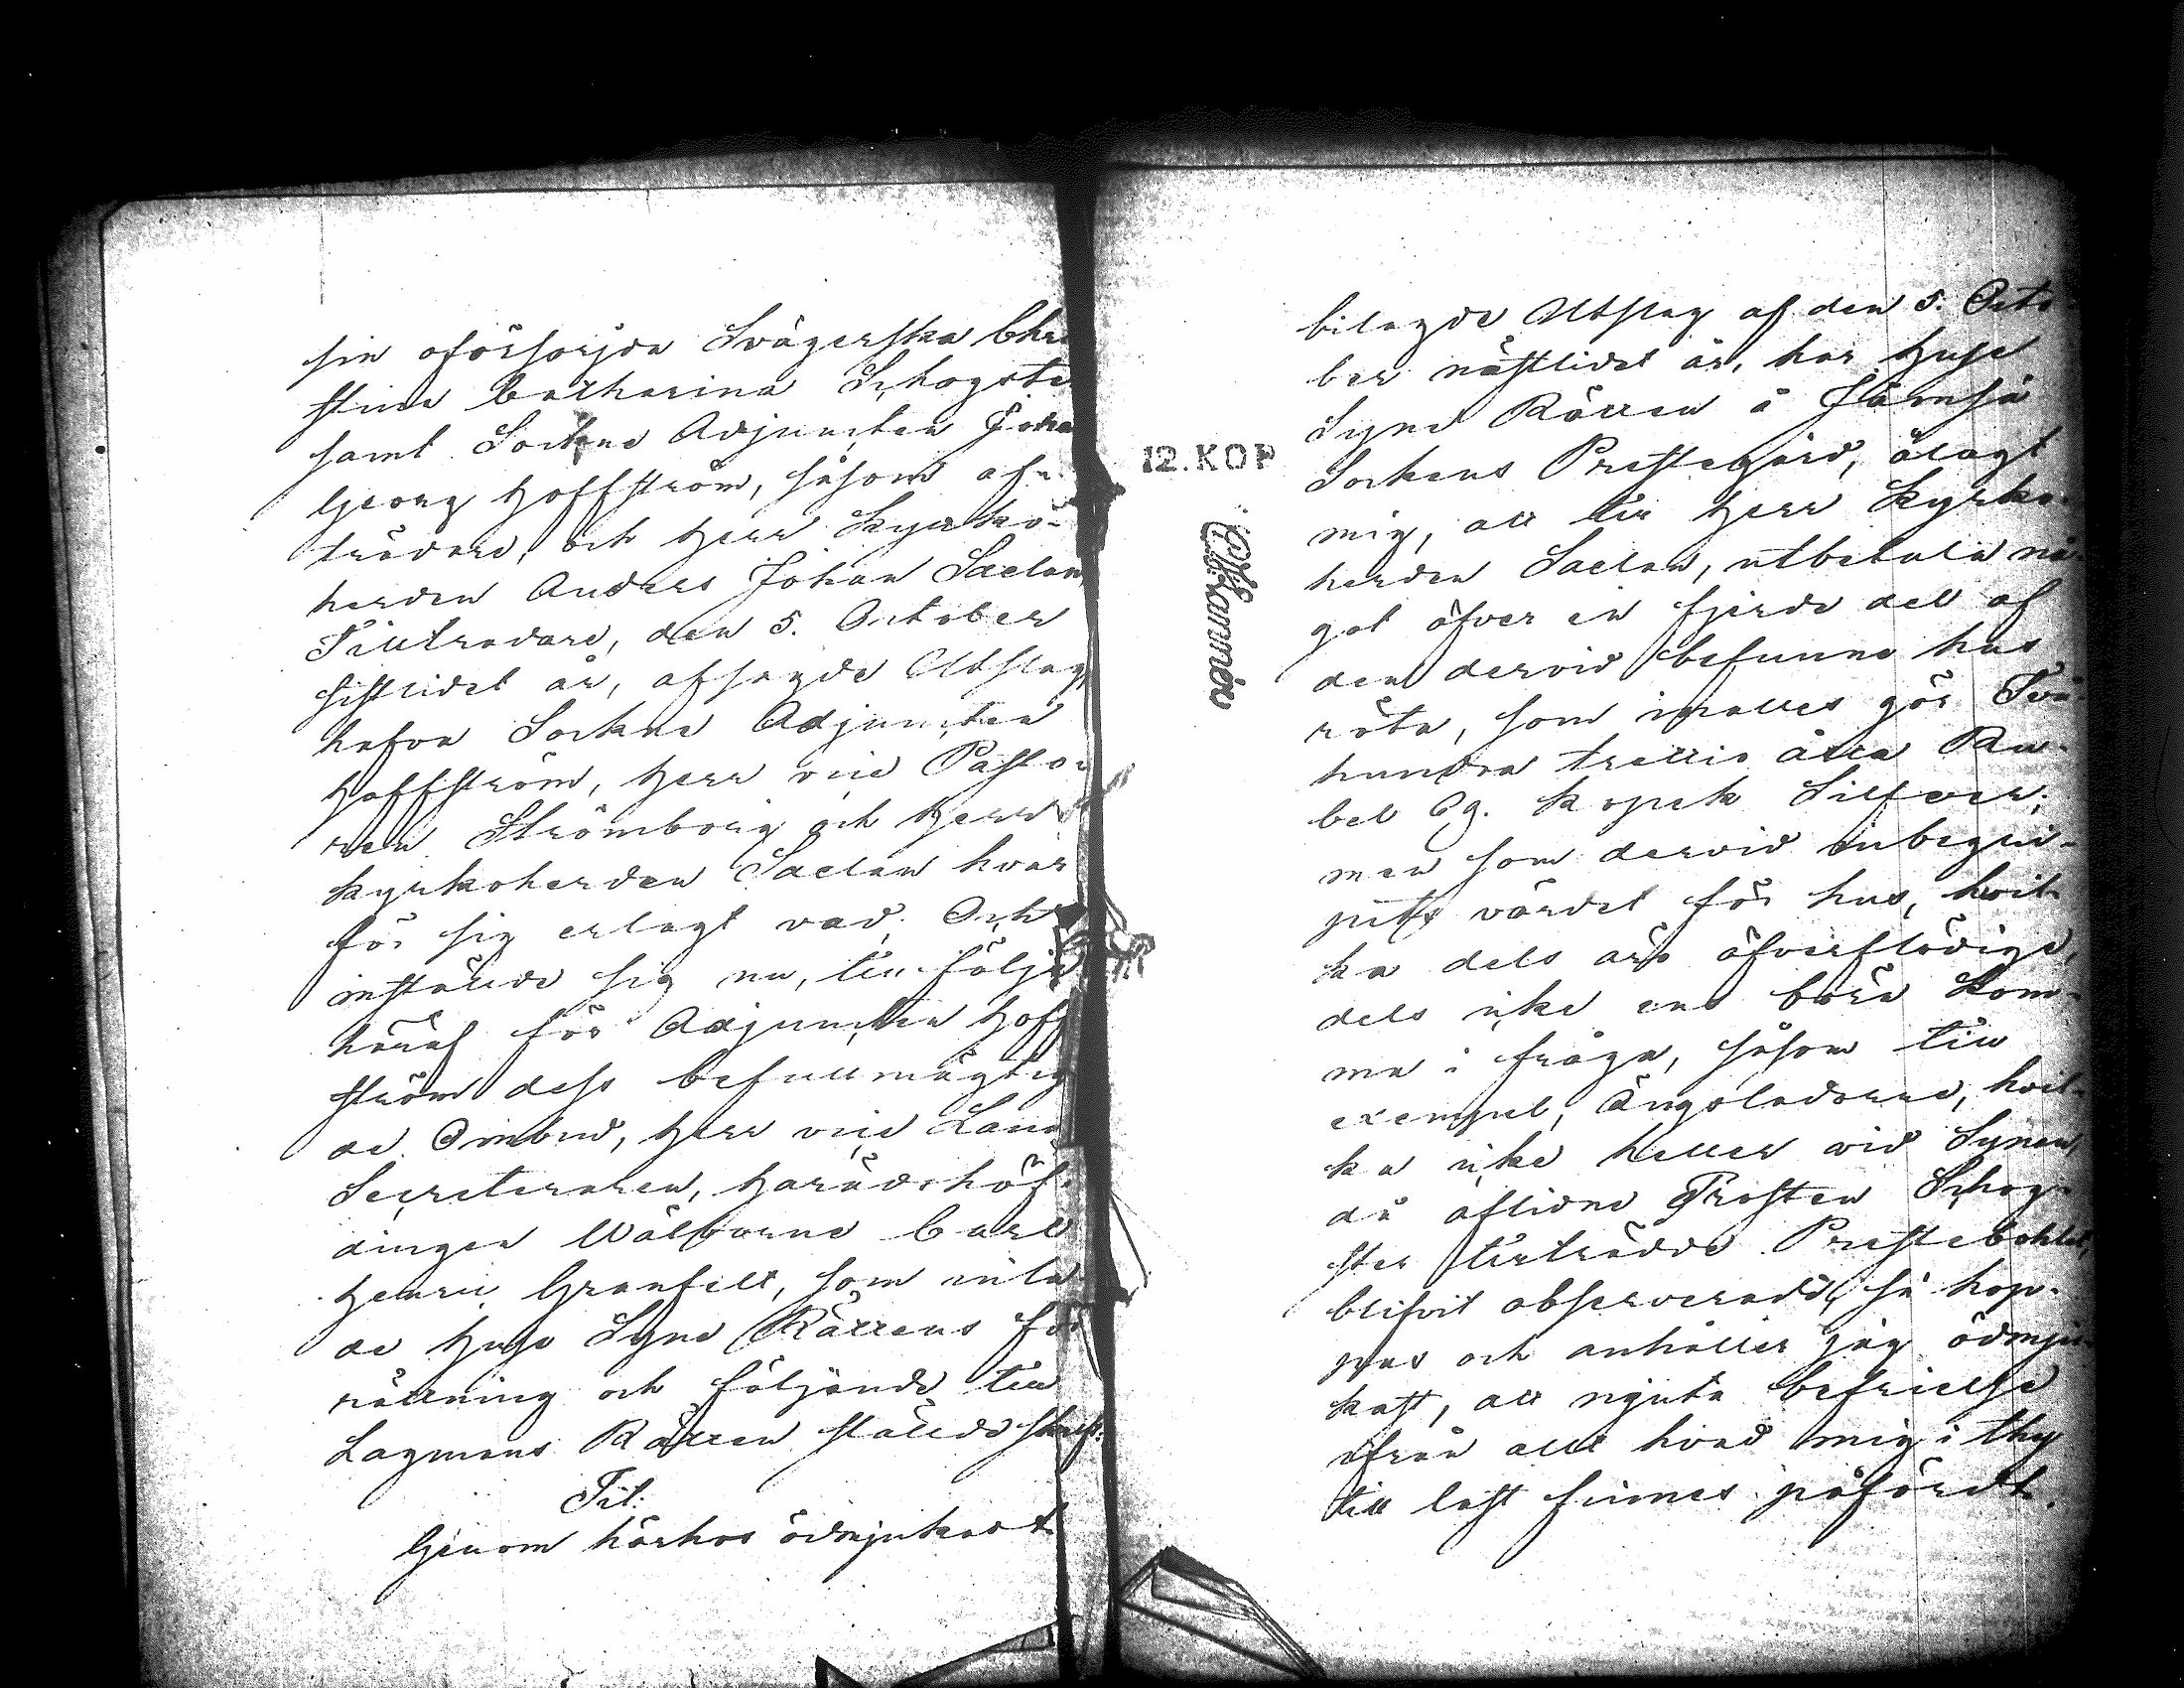 sin oförsorjda Svägerska Chri
stina Catharina Schogste
samt Sockne Adjuncten Joha
Georg Hoffström, såsom af-
trädare, och Herr Kyrko-
herden Anders Johan Saelan
Tillträdare, den 5. October
sistlidet år, afsagde Utslag,
hafva Sockne Adjuncten
Hoffström, Herr vice Pasto-
ren Strömborg och Herr
kyrkoherden Saelan hvar
för sig erlagt vad. Och
inställde sig nu, till följe
häraf för Adjuncten Hoff
ström dess befullmägtig
ad Ombud, Herr vice Land
Secreteraren, Häradshöf-
dingen Wälborne Carl
Henric Granfelt, som inla
de Huse Syne Rättens för
rättning och följande till
Lagmans Rätten ställde skrift:
Tit:
Genom härhos ödmjukast
bilagde Utslag af den 5. Octo
ber nästlidet år, har Huse
Syne Rätten å Jämsä
Sockens Prestegård, ålagt
mig, att till Herr Kyrko-
herden Saelan, utbetala nå-
got öfver en fjerde del af
den dervid befunne hus
röta, som inalles gör Två
hundra trettio åtta Ru-
bel 69. Kopek Silfver;
men som dervid inbegri-
pits värdet för hus, hvil-
ka dels äro öfverflödige,
dels icke ens böra kom-
ma i fråga, såsom till
exempel, Ängsladorne, hvil-
ka icke heller vid Synen,
då aflidne Prosten Schog-
ster tillträdde Prestebohlet,
blifvit observerade så hop-
pas och anhåller jag ödmju-
kast, att njuta befrielse
ifrån allt hvad mig i thy
till last finnes påfördt.
12. KOP